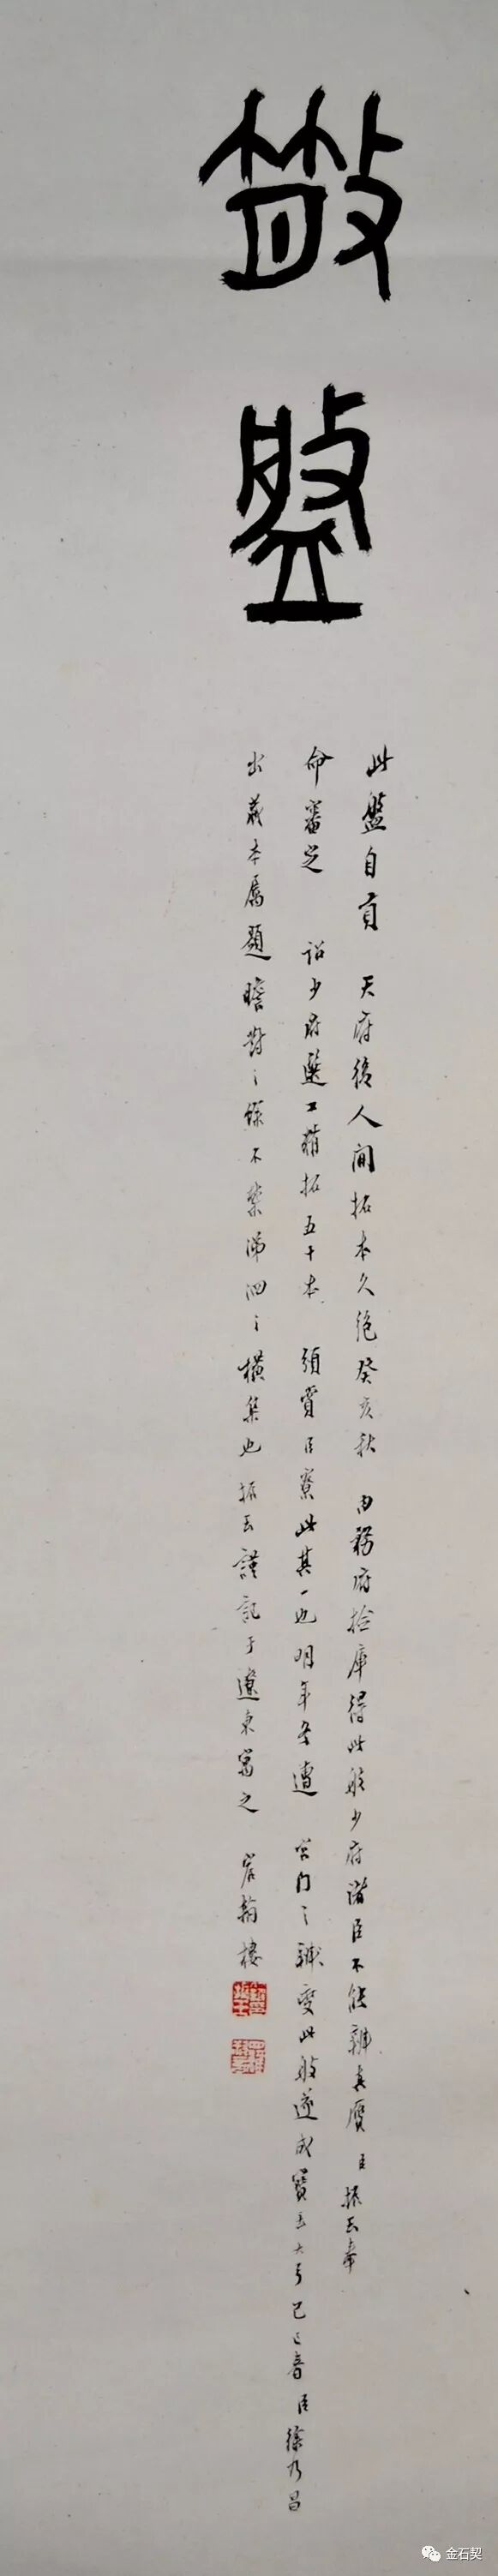 散盤
此盤自貢　天府後人間拓本久絕癸亥秋　內務府檢庫得此般少府諸臣不能辨真贋　臣振玉奉
命審定　詔少府選工精拓五十本　頒賞臣寮此其一也明年冬遭　宮門之鞁變此般遂成寶玉大弓己巳春　臣徐乃昌
出藏本屬題瞻對之餘不禁涕泗之橫集也振玉謹記于遼東寓之　樓
金石契